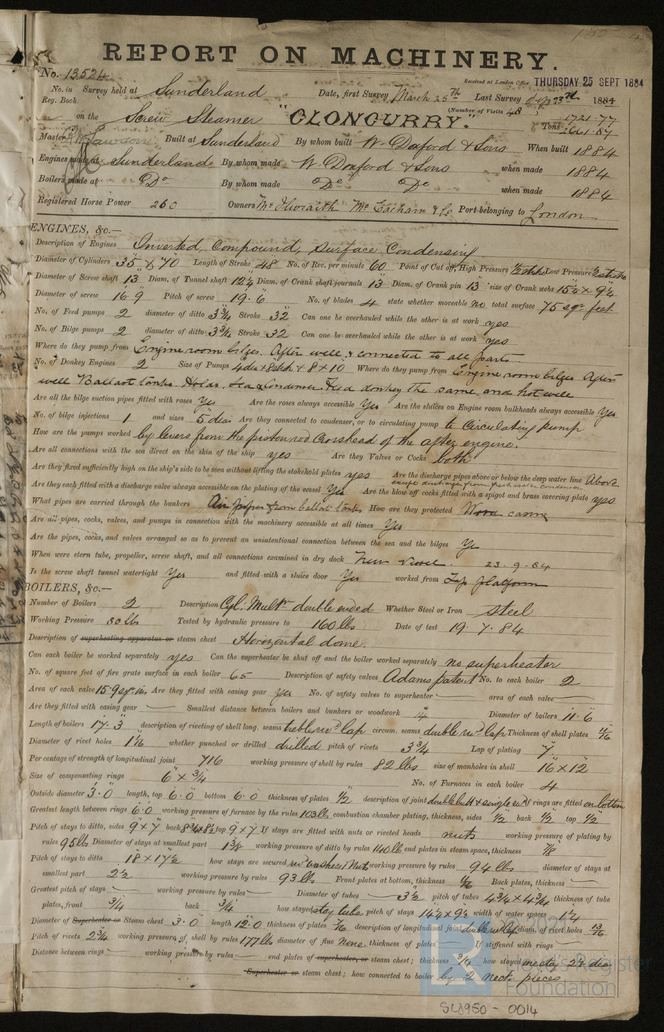 REPORT ON MACHINERY.
No. 13524
Received at London Office THURSDAY 25 SEPT 1884
No. in Survey held at Sunderland Date, first Survey March 25th Last Survey 1884
Reg. Book (Number of Visits 48)
on the Screw Steamer "CLONCURRY." Tons
Master Built at Sunderland By whom built W. Doxford & Sons When built 1884
Engines made at Sunderland By whom made W Doxford & Sons when made 1884
Boilers made at Do By whom made Do Do when made 1884
Registered Horse Power 260 Owners Port belonging to London
ENGINES, &c.—
Description of Engines Inverted, Compound, Surface Condensing
Diameter of Cylinders 35" & 70 Length of Stroke 48 No. of Rev. per minute 60 Point of Cut off, High Pressure Low Pressure
Diameter of Screw shaft 13 Diam. of Tunnel shaft 12¼ Diam. of Crank shaft journals 13 Diam. of Crank pin 13 size of Crank webs
Diameter of screw 16 9 Pitch of screw 19. 6 No. of blades 4 state whether moveable no total surface 75 sqr feet
No. of Feed pumps 2 diameter of ditto 3¾ Stroke 32 Can one be overhauled while the other is at work yes
No. of Bilge pumps 2 diameter of ditto 3¾ Stroke 32 Can one be overhauled while the other is at work yes
Where do they pump from Engine room bilges. After well & connected to all parts
No. of Donkey Engines 2 Size of Pumps Where do they pump from Engine room bilges After
well Ballast tanks Holds, Sea & Condenser Feed donkey the same and hot well
Are all the bilge suction pipes fitted with roses yes Are the roses always accessible Yes Are the sluices on Engine room bulkheads always accessible Yes
No. of bilge injections 1 and sizes 5" dia Are they connected to condenser, or to circulating pump to Circulating pump
How are the pumps worked by levers from the piston rod Crosshead of the after engine.
Are all connections with the sea direct on the skin of the ship yes Are they Valves or Cocks both
Are they fixed sufficiently high on the ship's side to be seen without lifting the stokehold plates yes Are the discharge pipes above or below the deep water line Above
except discharge from fresh water Condenser
Are they each fitted with a discharge valve always accessible on the plating of the vessel Yes Are the blow off cocks fitted with a spigot and brass covering plate yes
What pipes are carried through the bunkers How are they protected
Are all pipes, cocks, valves, and pumps in connection with the machinery accessible at all times Yes
Are the pipes, cocks, and valves arranged so as to prevent an unintentional connection between the sea and the bilges Yes
When were stern tube, propeller, screw shaft, and all connections examined in dry dock New Vessel 23-9-84
Is the screw shaft tunnel watertight Yes and fitted with a sluice door Yes worked from Top platform
BOILERS, &c.—
Number of Boilers 2 Description Cyl. Mult. double ended Whether Steel or Iron steel
Working Pressure 80 lbs Tested by hydraulic pressure to 160 lbs Date of test 19. 7. 84
Description of superheating apparatus or steam chest Horizontal dome
Can each boiler be worked separately yes Can the superheater be shut off and the boiler worked separately no superheater
No. of square feet of fire grate surface in each boiler 65 Description of safety valves Adams patent No. to each boiler 2
Area of each valve Are they fitted with easing gear yes No. of safety valves to superheater area of each valve
Are they fitted with easing gear Smallest distance between boilers and bunkers or woodwork 14 Diameter of boilers 11.6
Length of boilers 17.3 description of riveting of shell long. seams treble riv lap circum. seams double riv lap Thickness of shell plates
Diameter of rivet holes 1 1/16 whether punched or drilled drilled pitch of rivets 3¾ Lap of plating 7
Per centage of strength of longitudinal joint 716 working pressure of shell by rules 82 lbs size of manholes in shell 16 x 12
Size of compensating rings 6" x ¾ No. of Furnaces in each boiler 4
Outside diameter 3.0 length, top 6.0 bottom 6.0 thickness of plates ½ description of joint if rings are fitted on bottom
Greatest length between rings 6.0 working pressure of furnace by the rules 103 lbs combustion chamber plating, thickness, sides ½ back ½ top ½
Pitch of stays to ditto, sides 9 x 7 back top 9 x 7 If stays are fitted with nuts or riveted heads nuts working pressure of plating by
rules 95 lbs Diameter of stays at smallest part 1 3/8 working pressure of ditto by rules 140 lbs end plates in steam space, thickness 7/8
Pitch of stays to ditto 18 x 17½ how stays are secured working pressure by rules 94 lbs diameter of stays at
smallest part 2½ working pressure by rules 93 lbs Front plates at bottom, thickness Back plates, thickness
Greatest pitch of stays working pressure by rules Diameter of tubes 3½ pitch of tubes 4¾ x 4¾ thickness of tube
plates, front ¾ back ¾ how stayed stay tube pitch of stays 14½ x 9½ width of water spaces 1¼
Diameter of Superheater or Steam chest 3.0 length 12.0 thickness of plates description of longitudinal joint double riv lap diam. of rivet holes
Pitch of rivets 2¾ working pressure of shell by rules 177 lbs diameter of flue None thickness of plates If stiffened with rings
Distance between rings working pressure by rules end plates of superheater, or steam chest; thickness how stayed
Superheater or steam chest; how connected to boiler by 2 neck pieces
Lloyd's Register
Foundation
SLD950 - 0014